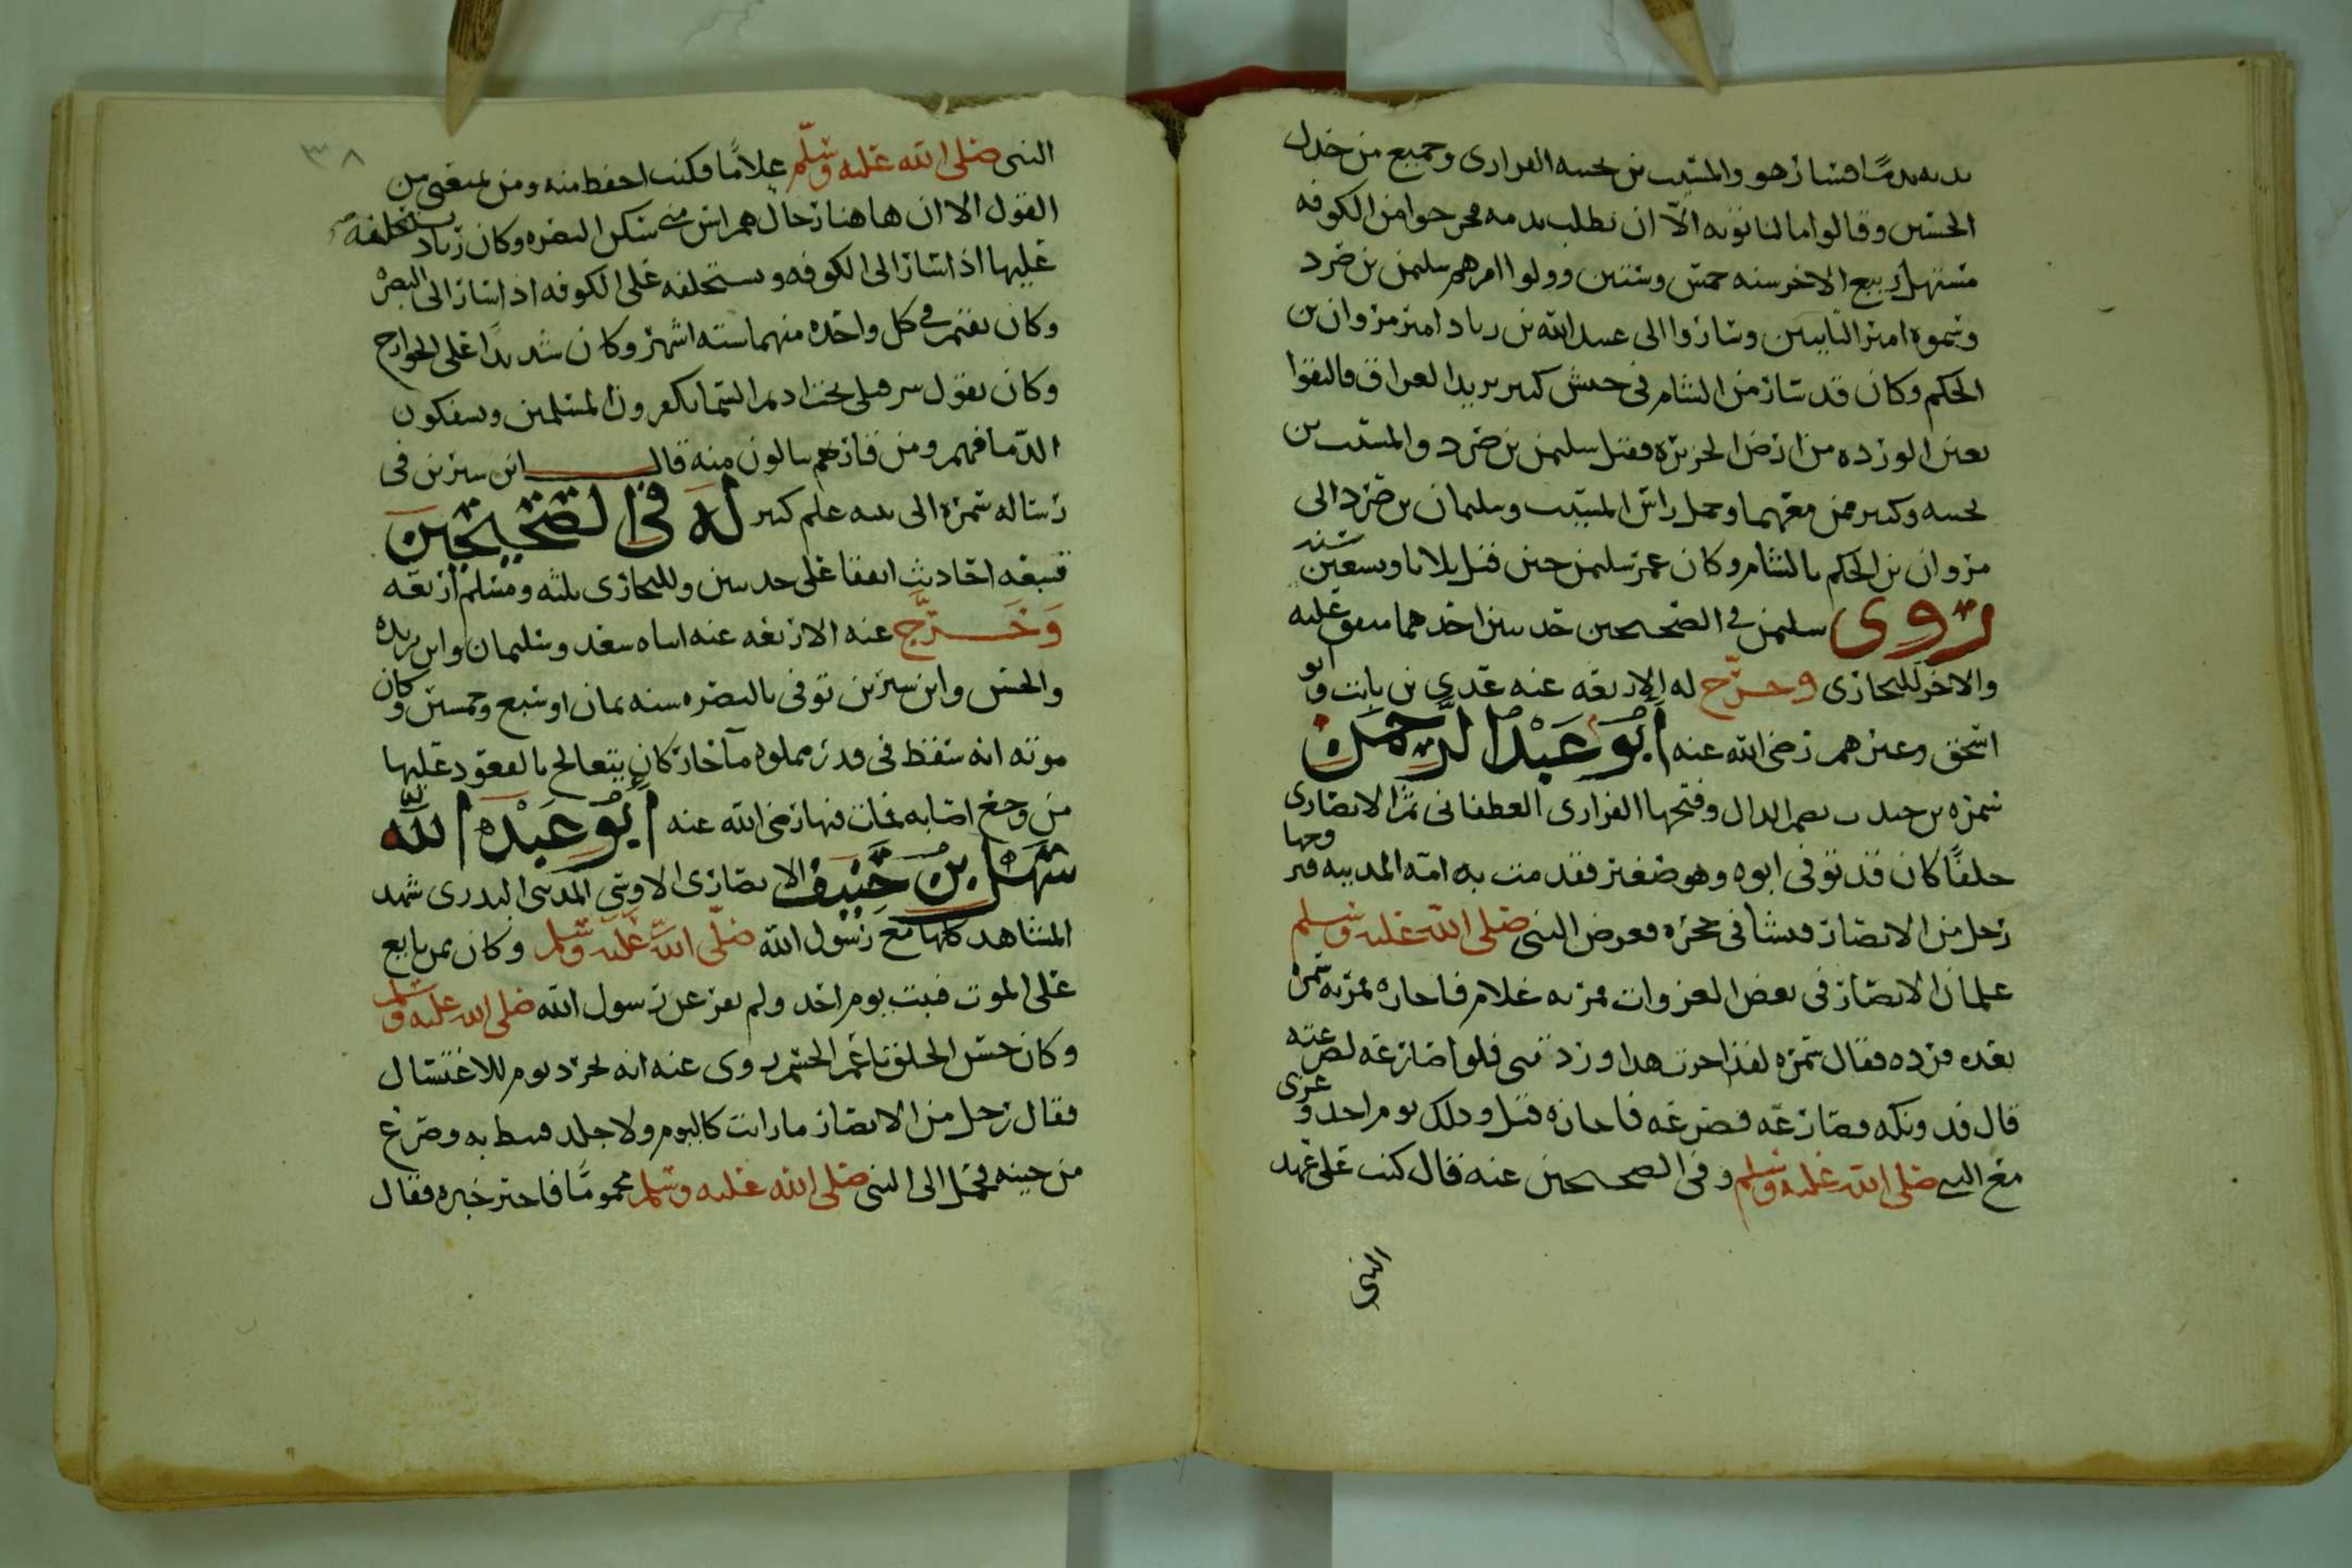 يديه ندمًا فسار هو والمسيب بن نجبه الفزارى وجميع من خذل
الحسين وقالوا ما لنا توبه الّا ان نطلب بدمه فخرجوا من الكوفه
مستهل ربيع الاخر سنه خمس وستين وولوا امرهم سليمن بن صرد
وسموه امير التايبين وساروا الى عبيد الله بن زياد امير مروان بن
الحكم وكان قد سار من الشام فى جيش كبير يريد العراق فالتقوا
بعين الورده من ارض الجزيره فقتل سليمن بن صرد والمسيب بن
نجبه وكثير ممن معهما وحمل راس المسيب وسليمان بن صرد الى
مروان بن الحكم بالشام وكان عمر سليمن حين قتل ثلاثا وتسعين سنه
روى سليمن في الصحيحين حديثين احدهما متفق عليه
والاخر للبخارى وخرّج له الاربعه عنه عدي بن ثابت وابو
اسحق وغيرهم رضى الله عنه ابو عبد الرحمن
سمره بن جندب بضم الدال وفتحها الفزارى الغطفانى ثم الانصارى
حلفًا كان قد توفى ابوه وهو صغير فقدمت به امه المدينه فتزوجها
رجل من الانصار فنشا فى حجره فعرض النبى صلى الله عليه وسلم
غلمان الانصار فى بعض الغزوات فمر به غلام فاجازه فمر به سمره
بعده فرده فقال سمره لقد اجزت هذا ورددتنى فلو صارعته لصرعته
قال فدونكه فصارعه فصرعه فاجازه قيل وذلك يوم احد وغزى
مع النبي صلى الله عليه وسلم وفى الصحيحين عنه قال كنت على عهد
النبى
٣٨
النبى صلى الله عليه وسلّم غلامًا فكنت احفظ منه ومن يمنعنى من
القول الا ان هاهنا رجال هم اسن منى سكن البصره وكان زياد يستخلفه
عليها اذا سار الى الكوفه ويستخلفه على الكوفه اذا سار الى البصره
وكان يقيم في كل واحده منهما سته اشهر وكان شديدًا على الخوارج
وكان يقول شر قتلى تحت اديم السما يكفرون المسلمين ويسفكون
الدّما فهم ومن قاربهم ينالون منه قال ابن سيرين فى
رساله سمره الى بنيه علم كبير له فى الصحيحين
سبعه احاديث اتفقا على حديثين وللبخارى ثلثه ومسلم اربعه
وَخَرَّج عنه الاربعه عنه ابناه سعد وسليمان وابن بريده
والحسن وابن سيرين توفى بالبصره سنه ثمان او تسع وخمسين وكان
موته انه سقط فى قدر مملوه مآ حار كان يتعالج بالقعود عليها
من وجع اصابه فمات فيها رضى الله عنه ابو عبد الله
سهل بن حنيف الانصارى الاوسى المدنى البدرى شهد
المشاهد كلها مع رسول الله صلّى اللّه عليه وسلم وكان ممن بايع
على الموت فثبت يوم احد ولم يفر عن رسول الله صلى الله عليه وسلم
وكان حسن الخلق تام الجسم روى عنه انه تجرد يوم للاغتسال
فقال رجل من الانصار ما رايت كاليوم ولا جلد فلبط به وصرع
من حينه فحمل الى النبى صلى الله عليه وسلم محمومًا فاخبر خبره فقال